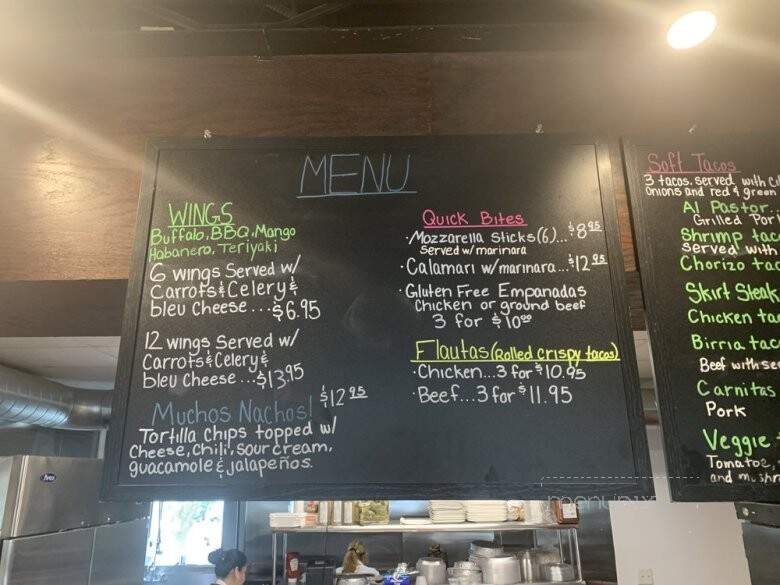 MENU
WINGS
Buffalo, BBQ, Mango
Habanero, Teriyaki
6 wings Served w/
Carrots & Celery &
bleu Cheese...$6.95
12 wings Served w/
Carrots & Celery &
bleu Cheese...$13.95
Muchos Nachos! $12.95
Tortilla chips topped w/
Cheese, Chili, Sour cream,
guacamole & jalapeños.
Quick Bites
·Mozzarella Sticks (6)...$8.95
Served w/ marinara
·Calamari w/marinara...$12.95
·Gluten Free Empanadas
Chicken or ground beef
3 for $10.00
Flautas (Rolled crispy tacos)
·Chicken...3 for $10.95
·Beef...3 for $11.95
Soft Tacos
3 tacos, served with
Onions and red & green
Al Pastor
Grilled
Shrimp
Served with
Chorizo
Skirt Steak
Chicken
Birria
Beef with
Carnitas
Pork
Veggie
Tomatoe,
and
menupix